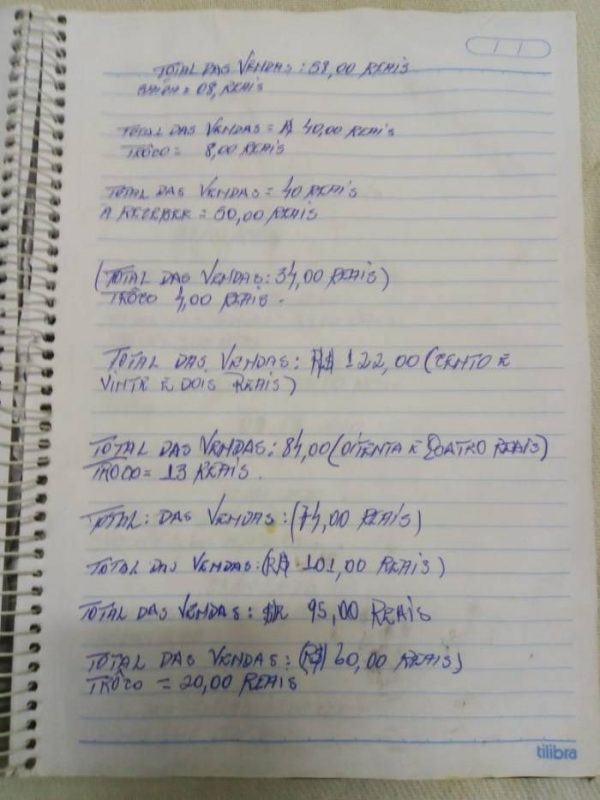 TOTAL DAS VENDAS: 58,00 REAIS
08, REAIS
TOTAL DAS VENDAS = R$ 40,00 REAIS
TRÔCO = 8,00 REAIS
TOTAL DAS VENDAS = 40 REAIS
A RECEBER = 50,00 REAIS
(TOTAL DAS VENDAS: 34,00 REAIS)
TRÔCO 4,00 REAIS.
TOTAL DAS VENDAS: R$ 122,00 (CENTO E
VINTE E DOIS REAIS)
TOTAL DAS VENDAS: 84,00 (OITENTA E QUATRO REAIS)
TROCO = 13 REAIS.
TOTAL: DAS VENDAS: (74,00 REAIS)
TOTAL DAS VENDAS: (R$ 101,00 REAIS)
TOTAL DAS VENDAS: 95,00 REAIS
TOTAL DAS VENDAS: (R$ 60,00 REAIS)
TRÔCO = 20,00 REAIS
tilibra